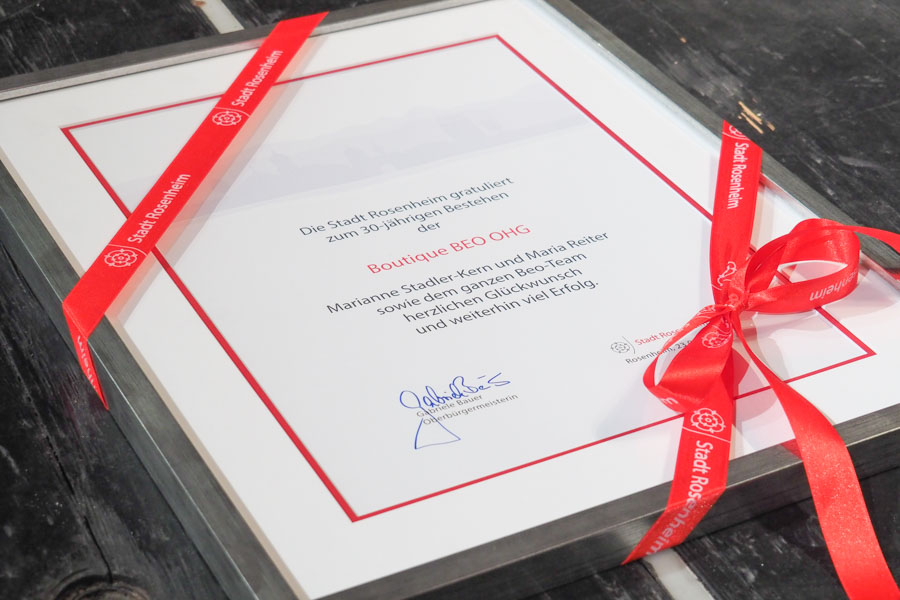 Stadt Rosenheim
Stadt Rosenheim
Die Stadt Rosenheim gratuliert
zum 30-jährigen Bestehen
der
Boutique BEO OHG
Marianne Stadler-Kern und Maria Reiter
sowie dem ganzen Beo-Team
herzlichen Glückwunsch
und weiterhin viel Erfolg.
Stadt
Rosenheim, 23
Gabriele Bauer
Oberbürgermeisterin
Stadt Rosenheim
Rosenheim
Stadt Rosenheim